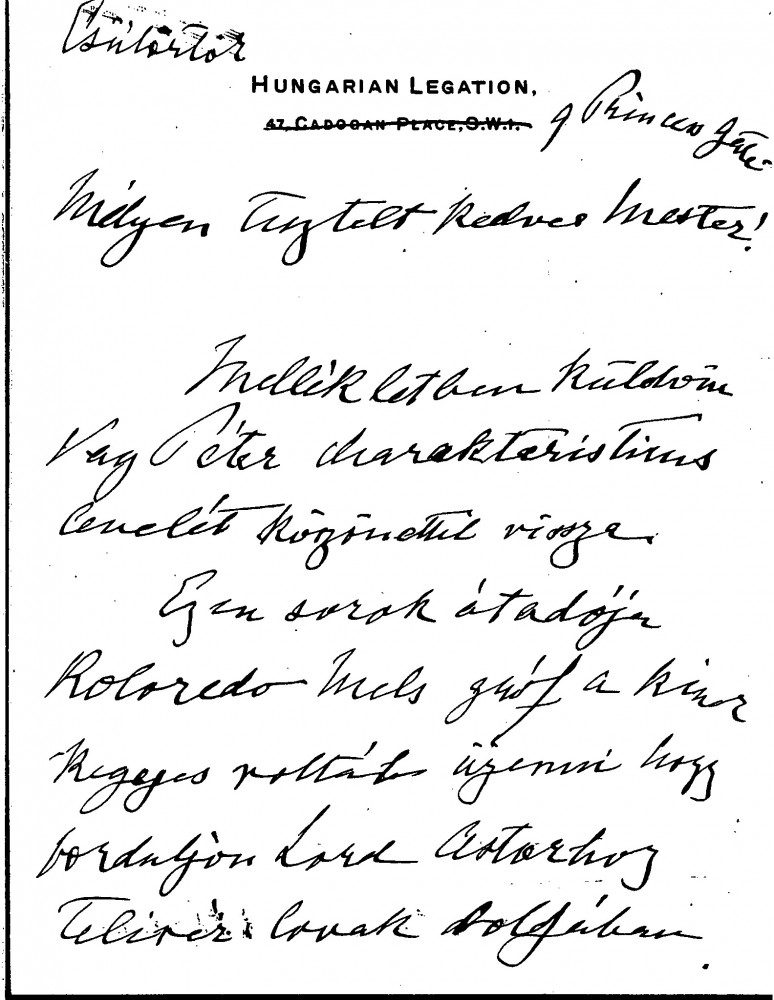 Csütörtök
HUNGARIAN LEGATION,
47, CADOGAN PLACE, S.W.1.
9 Princes Gate
Mélyen tisztelt kedves Mester!
Mellékletben küldöm
Vay Péter charakteristicus
levelét köszönettel vissza.
Ezen sorok átadója
Koloredo Mels gróf a kinek
kegyes voltál üzenni hogy
forduljon Lord Astorhoz
Telivér lovak dolgában